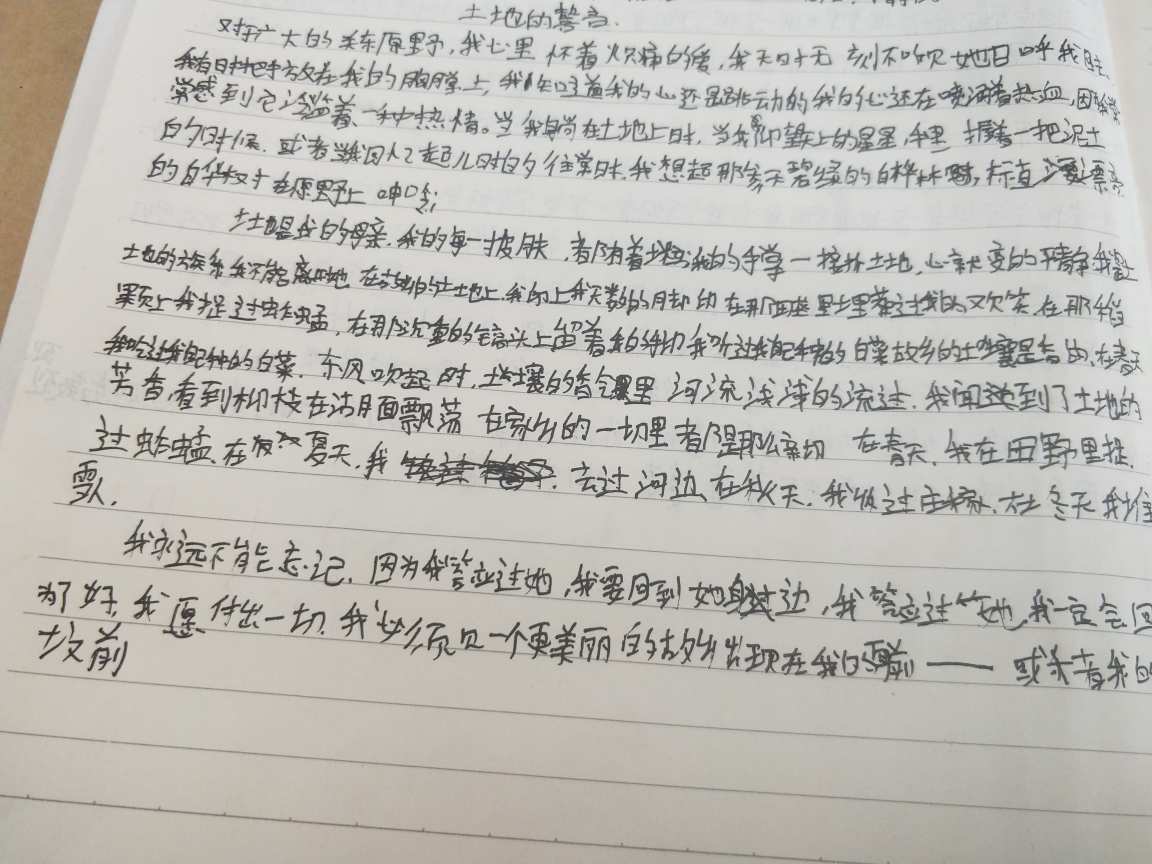 土地的誓言
对于广大的关东原野,我心里怀着炽痛的爱,我无时无刻不听见她呼
我有时把手放在我的胸膛上,我知道我的心还是跳动的我的心还在喷涌着热血,因
常感到它泛滥着一种热情。当我躺在土地上时,当我仰望天上的星星,手里握着一把泥土
的时候,或者当我回忆起儿时的往常时,我想起那参天碧绿的白桦林,标直漂亮
的白桦树在原野上呻吟;
土地是我的母亲,我的每一寸皮肤,都有着土粒,我的手掌一接扑土地,心就变的平静,我
土地的族系,我不能离开她,在故乡的土地上,我印上我无数的脚印,在那里埋过我的欢笑,在那稻
颗上我捉过蚱蜢,在那沉重的镐头上留着我的手印,我吃过我自己种的白菜故乡的土壤是香的,在春天
我吃过我自己种的白菜,东风吹起时,土壤的香气里河流浅浅的流过,我闻到了土地的
芳香,看到柳枝在湖面飘荡在家乡的一切里都是那么亲切在春天,我在田野里捉
过蚱蜢,在夏天,我去过河边,在秋天,我收过庄稼,在冬天我堆
雪人.
我永远不能忘记,因为我答应过她,我要回到她身边,我答应过她,我一定会回
为了好,我愿付出一切,我必须见一个更美丽的故乡出现在我的面前——或者我的
坟前